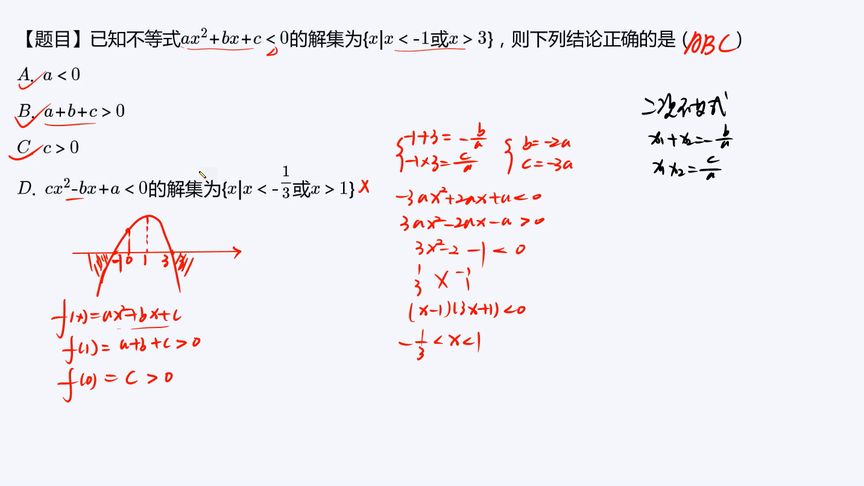 【题目】已知不等式ax²+bx+c<0的解集为{x|x<-1或x>3}，则下列结论正确的是（ABC）
A. a<0
B. a+b+c>0
C. c>0
D. cx²-bx+a<0的解集为{x|x<-1/3或x>1} X
-1 0 1 3
f(x)=ax²+bx+c
f(1)=a+b+c>0
f(0)=c>0
-1+3=-b/a b=-2a
-1×3=c/a c=-3a
-3ax²+2ax+a<0
3ax²-2ax-a>0
3x²-2 -1<0
1 -1
3 1
(x-1)(3x+1)<0
-1/3<x<1
二次不等式
x₁+x₂=-b/a
x₁x₂=c/a